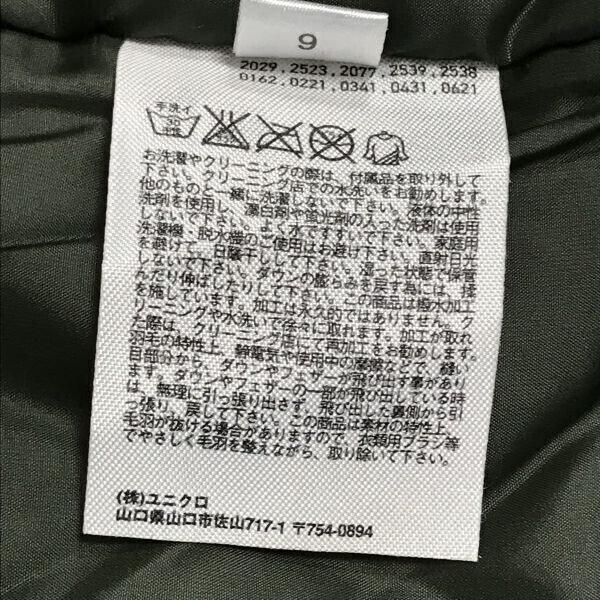 9
2029, 2523, 2077, 2539, 2538
0162, 0221, 0341, 0431, 0621
手洗イ
30
中性
お洗濯やクリーニングの際は、付属品を取り外して
下さい。クリーニング店での水洗いをお勧めします。
他のものと一緒に洗濯しないで下さい。液体の中性
洗剤を使用し、漂白剤や蛍光剤の入った洗剤は使用
しないで下さい。よく水ですすいで下さい。家庭用
洗濯機・脱水機のご使用はお避け下さい。直射日光
を避けて、日陰干しして下さい。湿った状態で保管
しないで下さい。ダウンの膨らみを戻す為には、揉
んだり伸ばしたりして下さい。この商品は撥水加工
を施しています。加工は永久的ではありません。ク
リーニングや水洗いで徐々に取れます。加工が取れ
た際は、クリーニング店にて再加工をお勧めします。
羽毛の特性上、静電気や使用中の摩擦などで、縫い
目部分から、ダウンやフェザーが飛び出す事があり
ます。ダウンやフェザーの一部が飛び出している時
は、無理に引っ張り出さず、飛び出した裏側から引
っ張り、戻して下さい。この商品は素材の特性上、
毛羽が抜ける場合がありますので、衣類用ブラシ等
でやさしく毛羽を整えながら、取り除いて下さい。
(株)ユニクロ
山口県山口市佐山717-1 〒754-0894